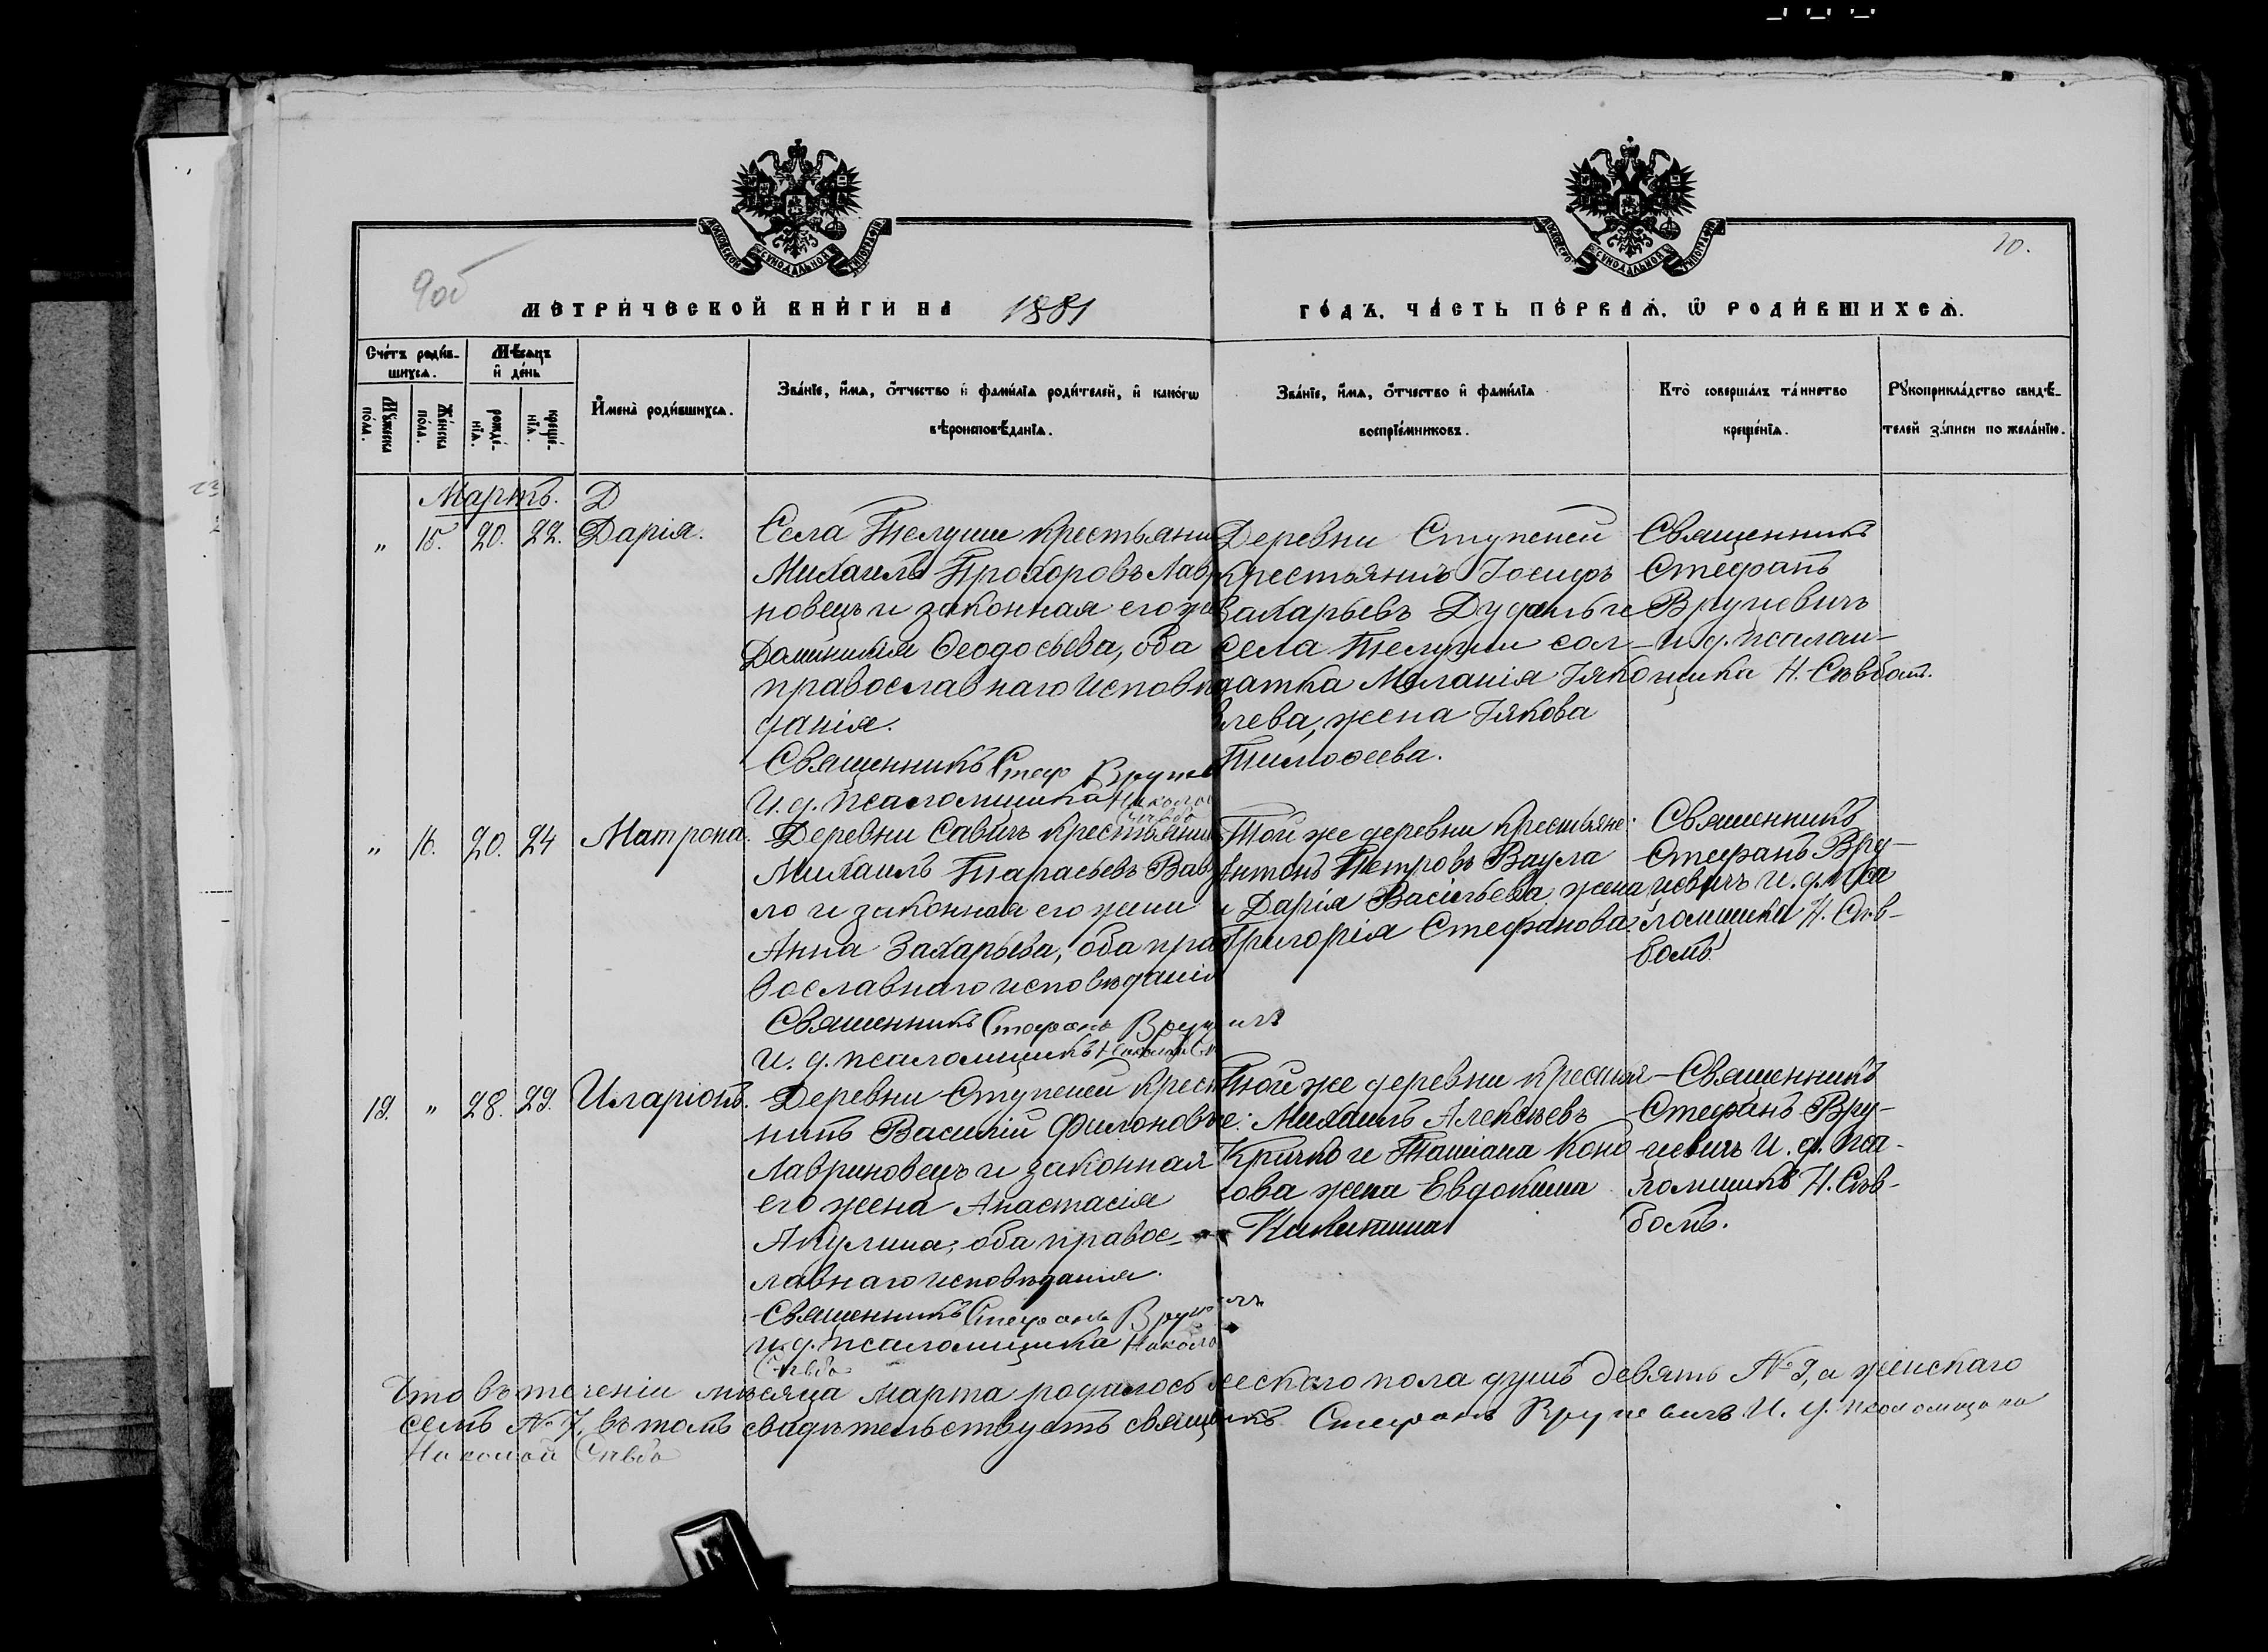 МОСКОВСКОЙ СѴНОДАЛЬНОЙ ТИПОГРАФІИ
МОСКОВСКОЙ СѴНОДАЛЬНОЙ ТИПОГРАФІИ
9об
10.
МЕТРИЧЕСКОЙ КНИГИ НА 1881 ГОДЪ, ЧАСТЬ ПЕРВАЯ, Ѡ РОДИВШИХСЯ.
Счетъ родив-
шихся.
Мѣсяцъ
и день
Мужеска
пола.
Женска
пола.
рожде-
нія.
креще-
нія.
Имена родившихся.
Званіе, имя, отчество и фамилія родителей, и какогѡ
вѣроисповѣданія.
Званіе, имя, отчество и фамилія
воспріемниковъ.
Кто совершалъ таинство
крещенія.
Рукоприкладство свидѣ-
телей записи по желанію.
Мартъ. Д
„ 15. 20. 22. Дарія.
Села Телуши крестьяни
Михаилъ Прохоровъ Лавр
новецъ и законная его же
Домникія Ѳеодосьева, оба
православнаго исповѣ
данія.
Священникъ Стеф Вруце
И. д. псаломщика Никола
Деревни Ступеней
крестьянинъ Іосифъ
Захарьевъ Дудаль и
села Телуши сол-
датка Меланія Іяко
влева, жена Іякова
Тимоѳеева.
Священникъ
Стефанъ
Вруцевичъ
и. д. псалом-
щика Н. Сѣвбомъ.
„ 16. 20. 24 Матрона.
Деревни Савичъ крестьяни
Михаилъ Тарасьевъ Вав
ло и законная его жена
Анна Захарьева, оба пра
вославнаго исповѣданія
Священникъ Стефанъ Вруцевичъ
И. д. псаломщикъ Николай
Той же деревни крестьяне:
Антонъ Петровъ Ваула
и Дарія Васильева, жена
Григорія Стефанова
Священникъ
Стефанъ Вру-
цевичъ и. д. пса
ломщика Н. Сѣв-
бомъ.
19. „ 28. 29. Иларіонъ.
Деревни Ступеней крест
нинъ Василій Филоновъ
Лавриновецъ и законная
его жена Анастасія
Акулина, оба правос-
лавнаго исповѣданія.
Священникъ Стефанъ Вруцевичъ
и. д. псаломщика Никола
Сѣвба
Той же деревни крестья-
не: Михаилъ Алексѣевъ
Кричко и Татіана Коно
нова жена Евдокима
Никитина
Священникъ
Стефанъ Вру-
цевичъ И. д. пса-
ломщикъ Н. Сѣв-
бомъ.
Что въ теченіи мѣсяца Марта родилось ескаго пола душъ девять № 9, а женскаго
семь № 7, въ томъ свидѣтельствуетъ священникъ Стефанъ Вруцевичъ И. д. псаломщика
Николай Сѣвба